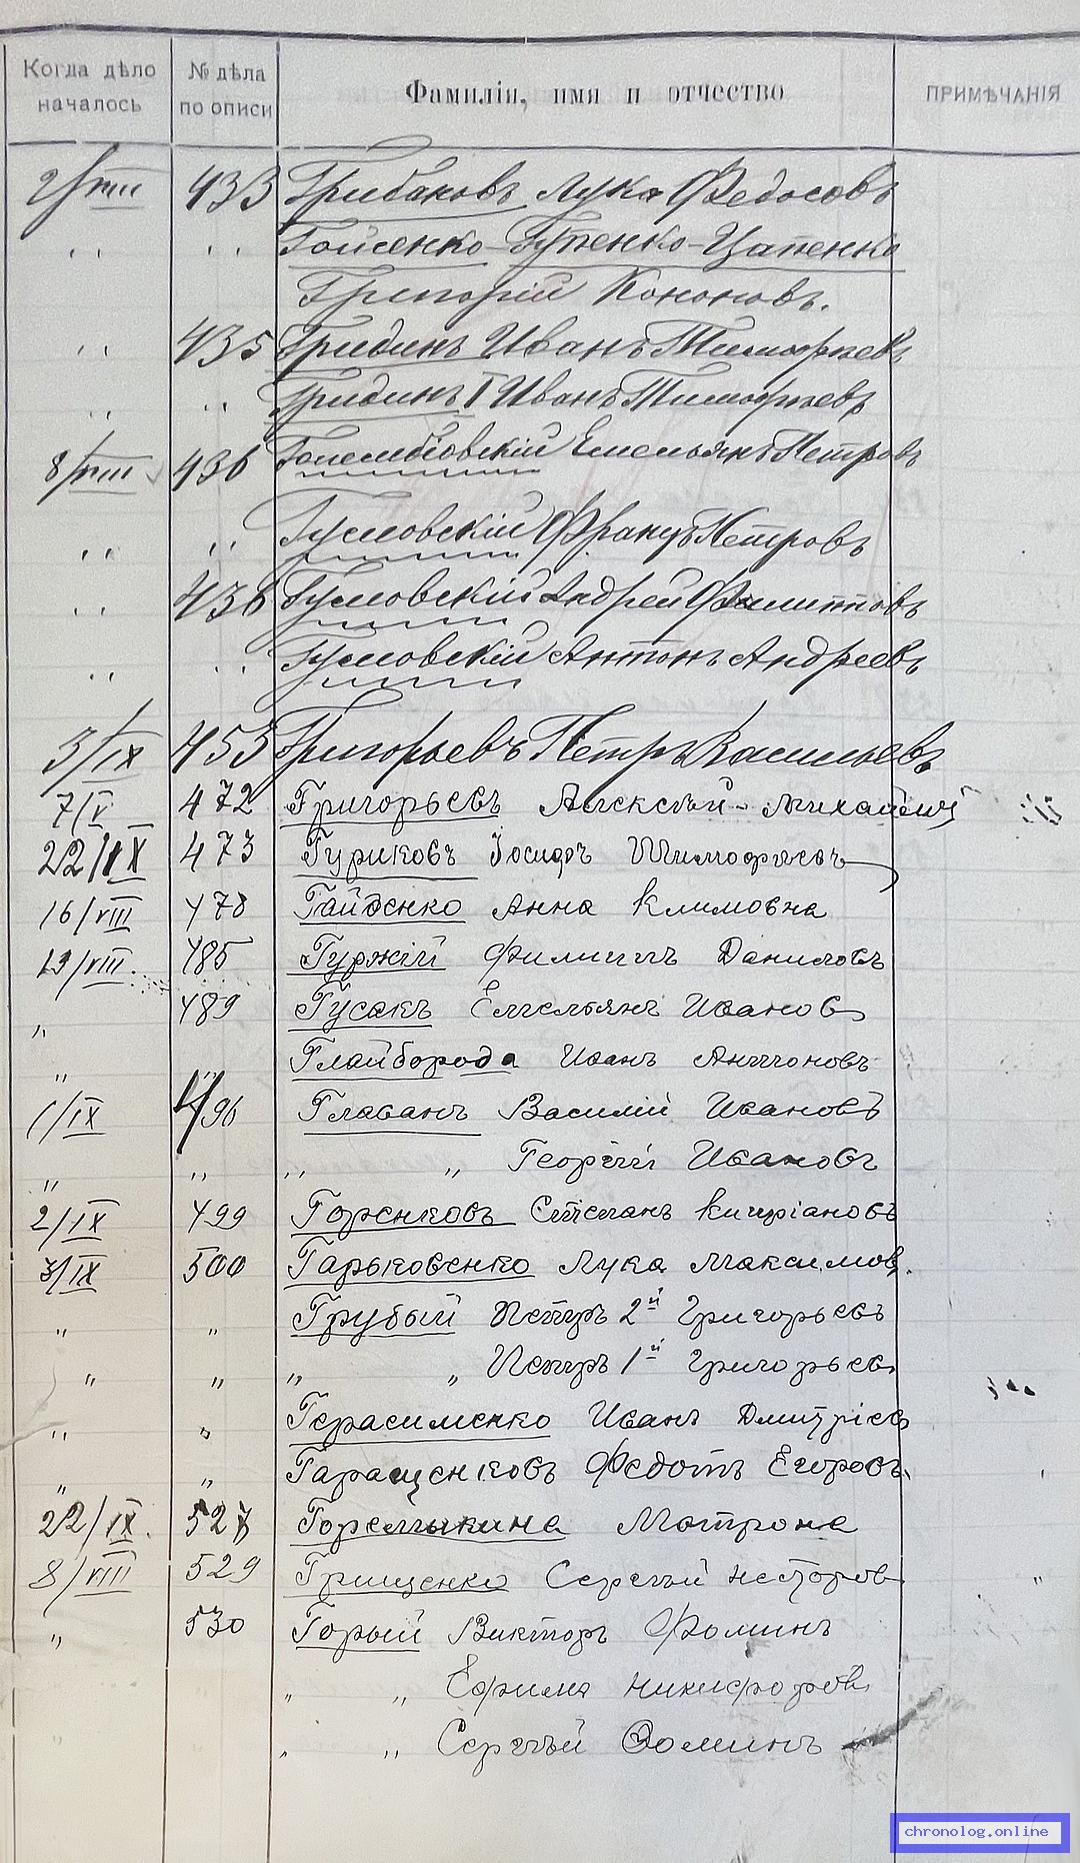 Когда дѣло началось № дѣла по описи Фамилія, имя и отчество ПРИМѢЧАНІЯ
2/VIII 433 Грибаковъ Лука Федосовъ
" " Гойсенко-Гупенко-Цапенко
Григорій Кононовъ.
" 435 Гридинъ Иванъ Тимофеевъ
" " Гридинъ I Иванъ Тимофеевъ
8/VIII 436 Емельянъ Петровъ
" " Гусловскій Францъ Петровъ
" 438 Гусловскій Андрей Филипповъ
" " Гусловскій Антонъ Андреевъ
3/IX 453 Григорьевъ Петръ Васильевъ
7/V 472 Григорьевъ Алексѣй Михайлов
22/IX 473 Гуриковъ Іосифъ Тимофѣевъ
16/VIII 478 Гайденко Анна Климовна
19/VIII. 485 Гуржій Филиппъ Даниловъ
" 489 Гусакъ Емельянъ Иванов
" " Глайборода Иванъ Антоновъ
1/IX 496 Главанъ Василій Ивановъ
" " " " Георгій Ивановъ
2/IX 499 Горенковъ Степанъ Кипріановъ
3/IX 500 Гарьковенко Лука Максимов.
" " Грубый Петръ 2й Григорьевъ
" " " " Петръ 1й Григорьев
" " Герасименко Иванъ Дмитріев
" " Гаращенковъ Федотъ Егоровъ
22/IX. 527 Горемыкина Матрона
8/VIII 529 Грищенко Сергѣй Несторов
" 530 Горый Викторъ Фоминъ
" " Ефимъ Никифоров
" " Сергѣй Фоминъ
chronolog.online